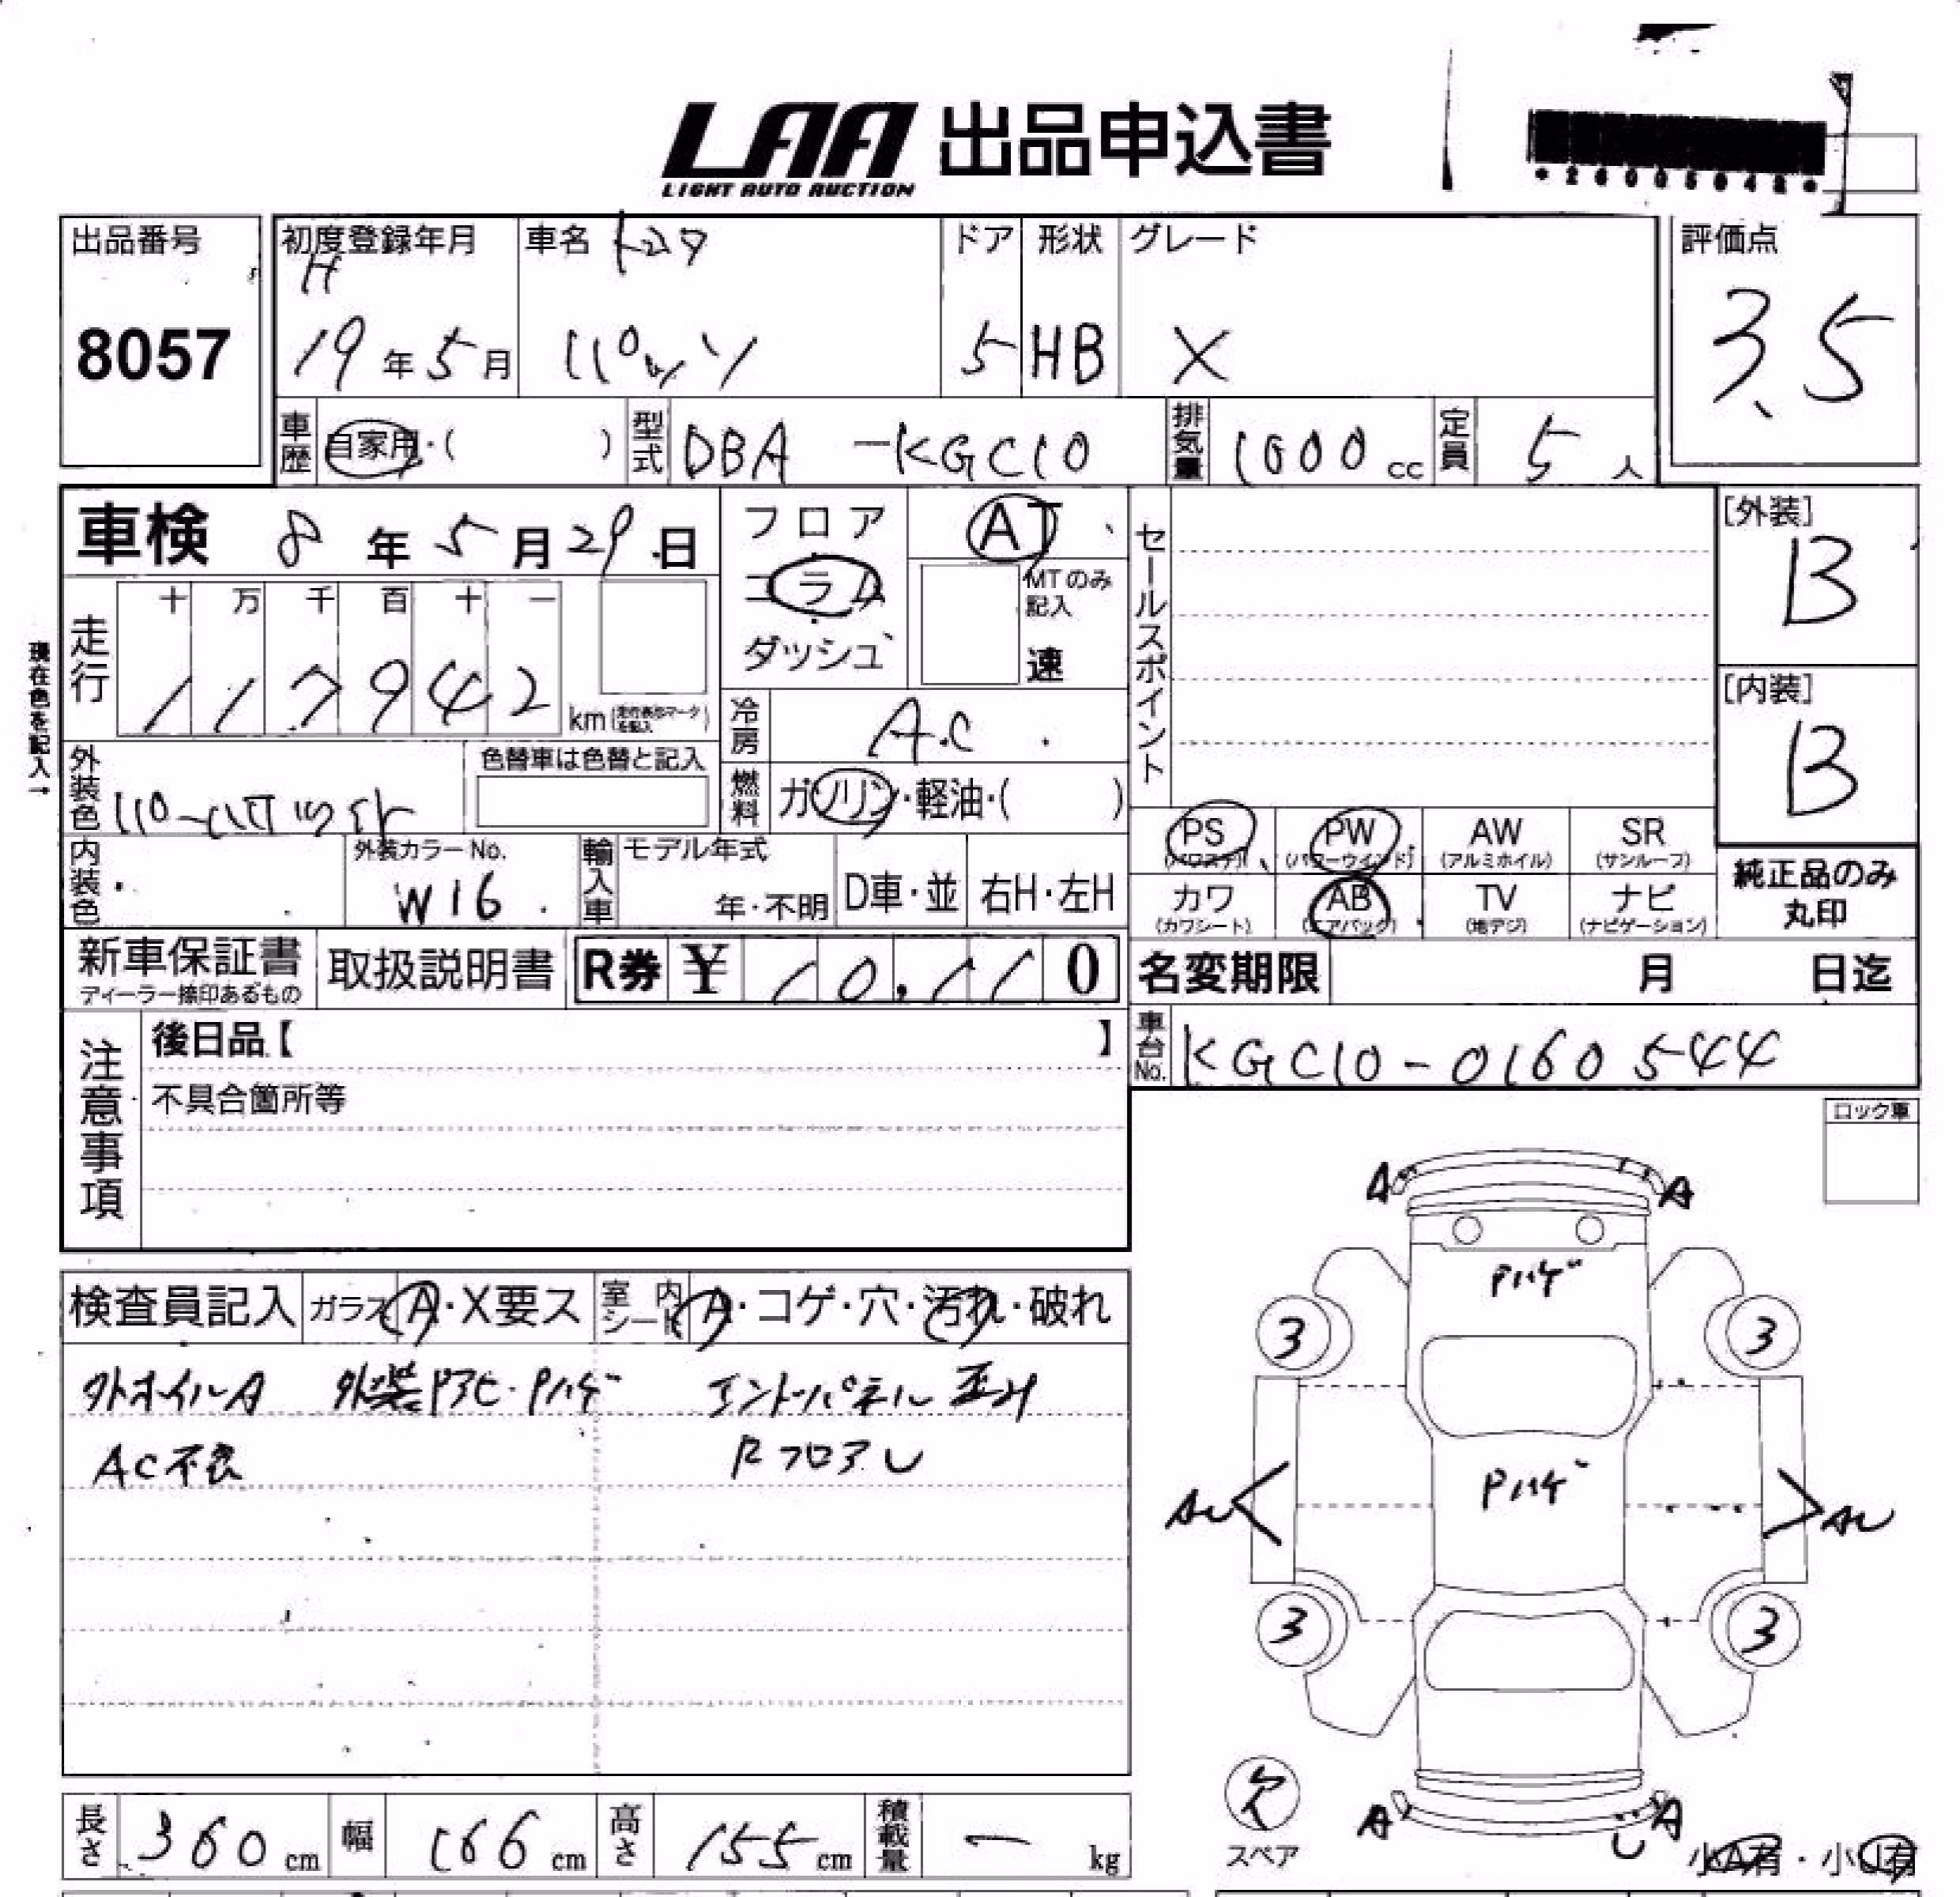 LAA 出品申込書
LIGHT AUTO AUCTION
出品番号
8057
初度登録年月
H
19年5月
車名 トヨタ
パッソ
ドア
5
形状
HB
グレード
X
評価点
3.5
車歴 自家用・( )
型式 DBA -KGC10
排気量 1000 cc
定員 5 人
車検 8年5月29日
フロア
コラム
ダッシュ
AT
MTのみ記入
速
セールスポイント
[外装]
B
[内装]
B
現在色を記入→
走行
十 万 千 百 十 一
1 1 7 9 4 2 km
冷房 A.C
燃料 ガソリン・軽油・( )
外装色
色替車は色替と記入
内装色
外装カラーNo.
W16
輸入車
モデル年式
年・不明
D車・並
右H・左H
PS (パワステ)
PW (パワーウインド)
AW (アルミホイル)
SR (サンルーフ)
カワ (カワシート)
AB (エアバッグ)
TV (地デジ)
ナビ (ナビゲーション)
純正品のみ
丸印
新車保証書
ディーラー捺印あるもの
取扱説明書
R券 ¥ 10,110
名変期限 月 日迄
車台No. KGC10-0160544
注意事項
後日品【 】
不具合箇所等
ロック車
検査員記入
ガラス A・X要ス
室内シート A・コゲ・穴・汚れ・破れ
外ホイルA
Pハゲ
エンドパネル 歪み
AC不良
RフロアU
A A
Pハゲ
3 3
Pハゲ
AU AU
3 3
欠
スペア
A A
U
小A有・小U有
長さ 360 cm
幅 166 cm
高さ 155 cm
積載量 ー kg